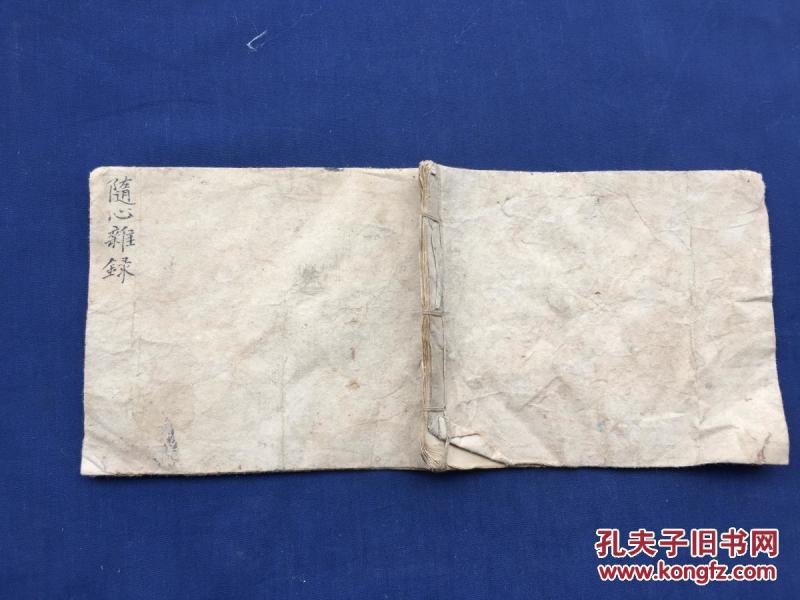 隨心雜録
孔夫子旧书网
www.kongfz.com